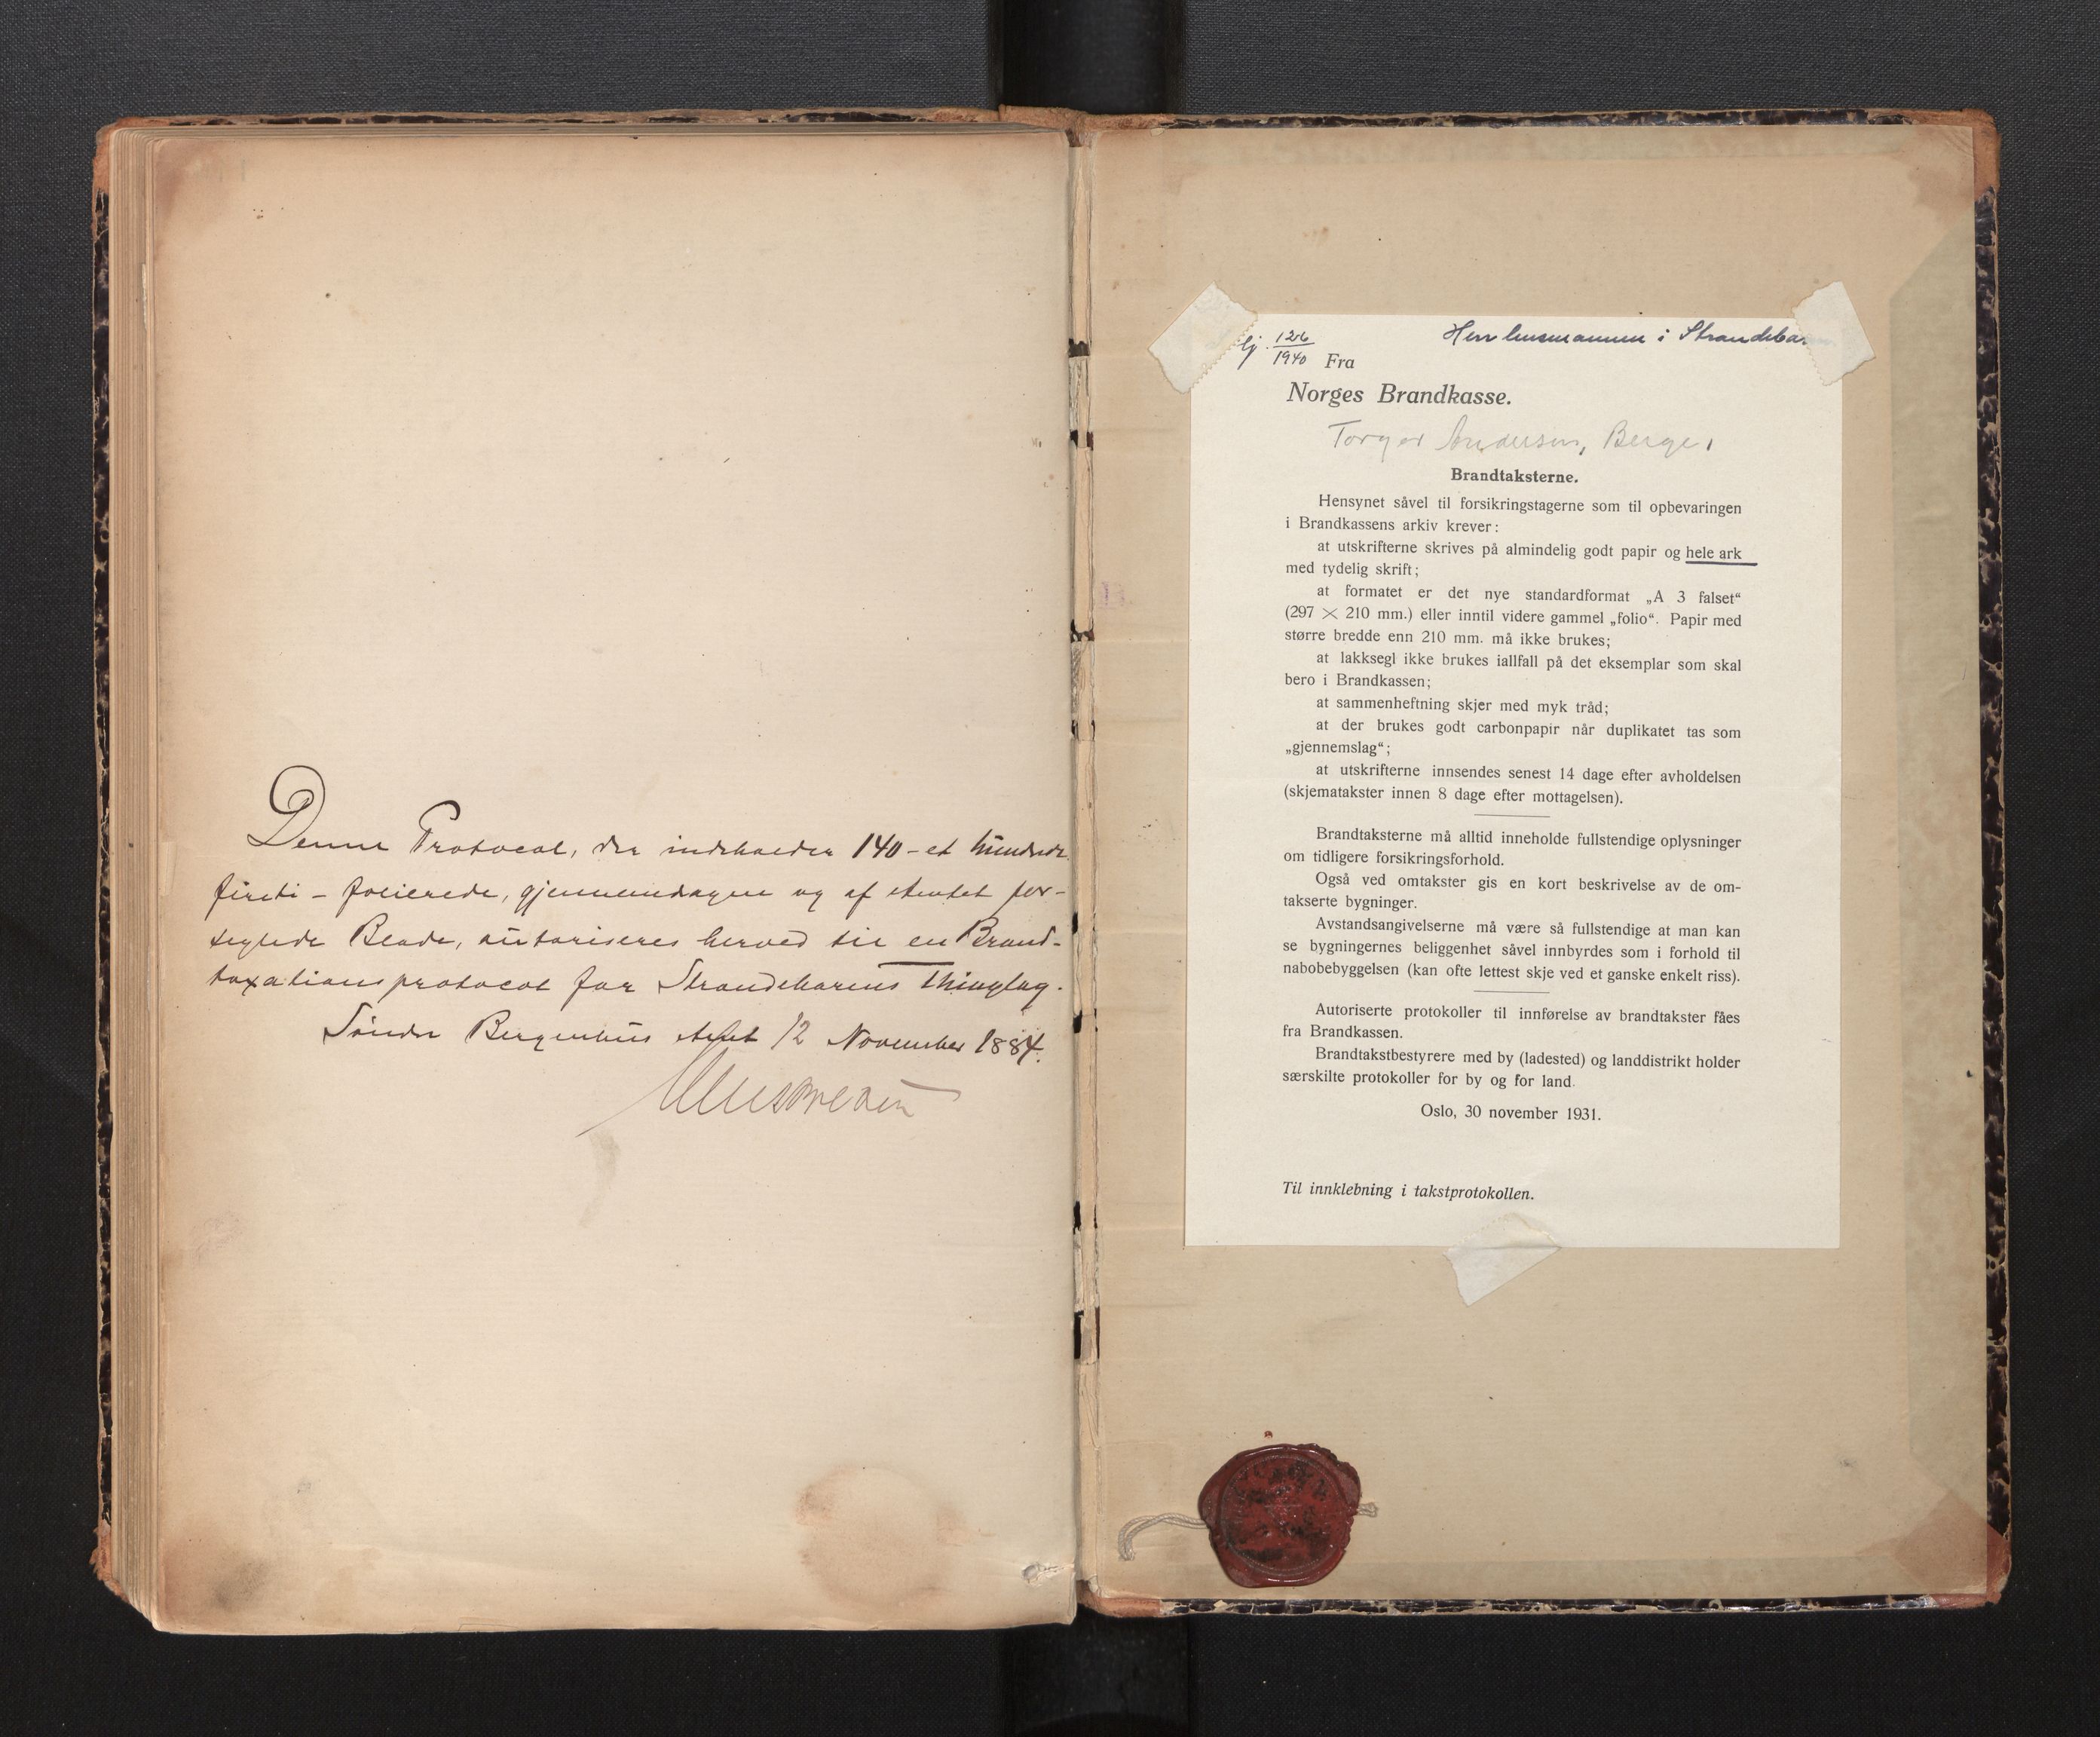 Denne Protocol, der indeholder 140 - et hundrede
firti - folierede, gjennemdragne og af Amtet for-
seglede Blade, autoriseres herved til en Brand-
taxationsprotocol for Strandebarms Thinglag.
Søndre Bergenhus Amt 12 November 1884.
j. 126/1940
Herr lensmannen i Strandebar
Fra
Norges Brandkasse.
Torger Andersen, Berge,
Brandtaksterne.
Hensynet såvel til forsikringstagerne som til opbevaringen
i Brandkassens arkiv krever:
at utskrifterne skrives på almindelig godt papir og hele ark
med tydelig skrift;
at formatet er det nye standardformat „A 3 falset“
(297 × 210 mm.) eller inntil videre gammel „folio“. Papir med
større bredde enn 210 mm. må ikke brukes;
at lakksegl ikke brukes iallfall på det eksemplar som skal
bero i Brandkassen;
at sammenheftning skjer med myk tråd;
at der brukes godt carbonpapir når duplikatet tas som
„gjennemslag“;
at utskrifterne innsendes senest 14 dage efter avholdelsen
(skjematakster innen 8 dage efter mottagelsen).
Brandtaksterne må alltid inneholde fullstendige oplysninger
om tidligere forsikringsforhold.
Også ved omtakster gis en kort beskrivelse av de om-
takserte bygninger.
Avstandsangivelserne må være så fullstendige at man kan
se bygningernes beliggenhet såvel innbyrdes som i forhold til
nabobebyggelsen (kan ofte lettest skje ved et ganske enkelt riss).
Autoriserte protokoller til innførelse av brandtakster fåes
fra Brandkassen.
Brandtakstbestyrere med by (ladested) og landdistrikt holder
særskilte protokoller for by og for land.
Oslo, 30 november 1931.
Til innklebning i takstprotokollen.